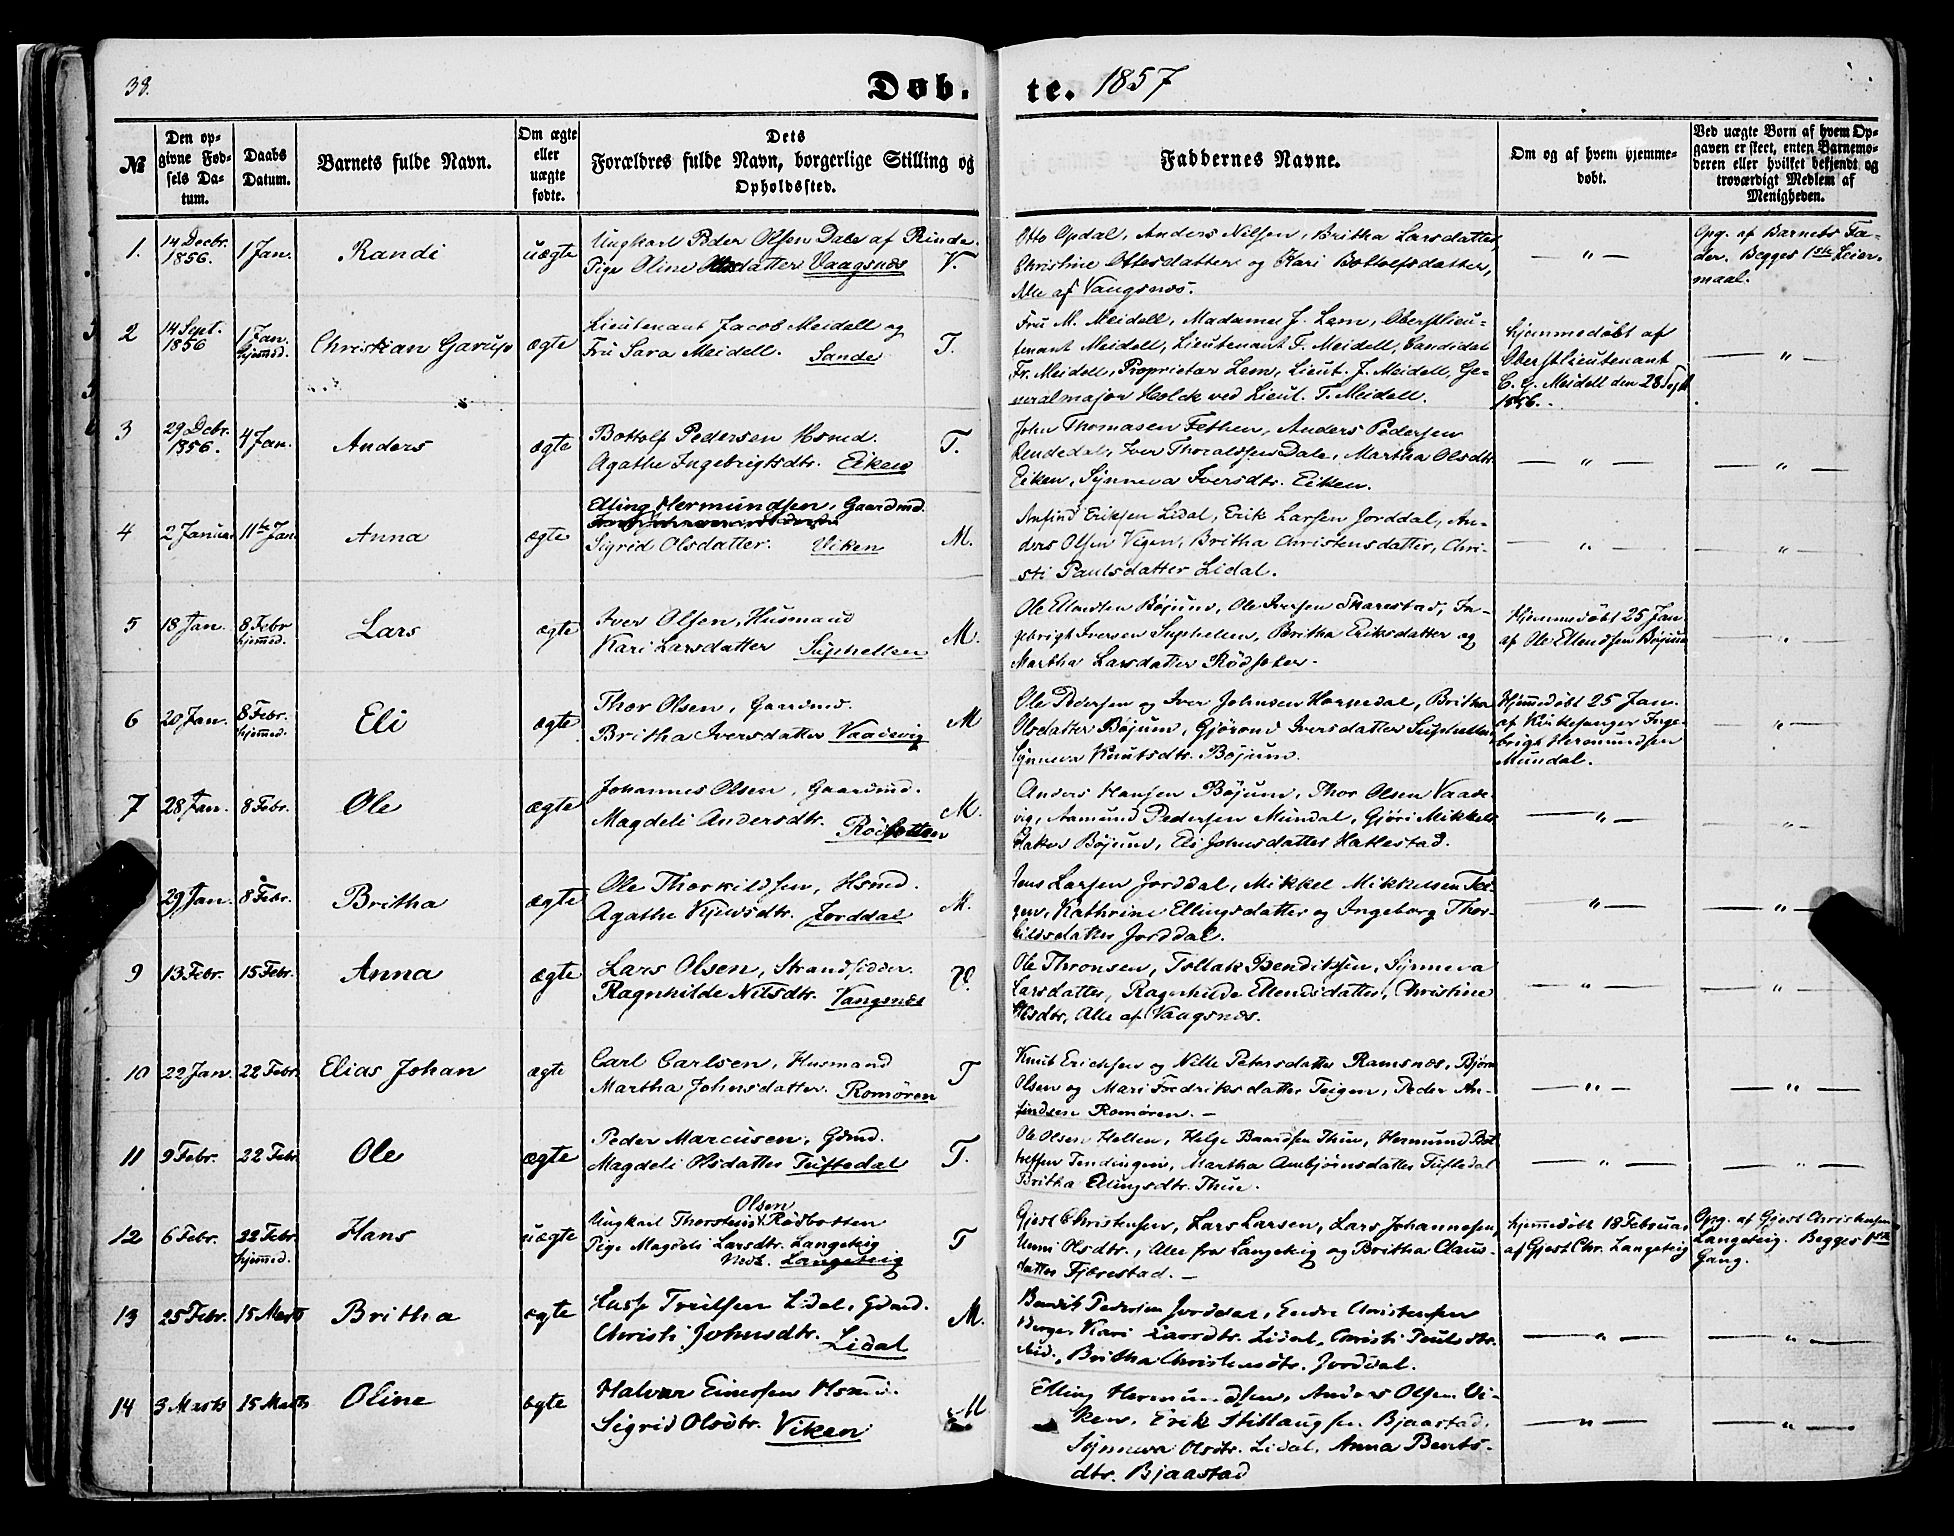 38.
Døb.
te. 1857
№
Den op-
givne Fød-
sels Da-
tum.
Daabs
Datum.
Barnets fulde Navn.
Om ægte
eller
uægte
fødte.
Dets
Forældres fulde Navn, borgerlige Stilling og
Opholdssted.
Faddernes Navne.
Om og af hvem hjemme-
døbt.
Ved uægte Børn af hvem Op-
gaven er skeet, enten Barnemo-
deren eller hvilket bekjendt og
troværdigt Medlem af
Menigheden.
1.
14 Decbr.
1856.
1 Jan.
Randi
uægte
Ungkarl Peder Olsen Dale af Rinde.
Pige Oline Olsdatter Vaagsnæs
V.
Otto Opdal, Anders Nilsen, Britha Larsdatter,
Christine Ottesdatter og Kari Bottolfsdatter,
Alle af Vangsnæs.
— " —
Opg. af Barnets Fa-
der. Begges 1ste Leier-
maal.
2
14 Sept.
1856
1 Jan.
hjemmed.
Christian Garup
ægte
Lieutenant Jacob Meidell og
Fru Sara Meidell. Sande
T.
Fru M. Meidell, Madame J. Lem, Oberstlieu-
tenant Meidell, Lieutenant F. Meidell, Candidat
Fr. Meidell, Proprietær Lem, Lieut. J. Meidell, Ge-
neralmajor Holck ved Lieut. F. Meidell.
hjemmedøbt af
Oberstlieutenant
C. G. Meidell den 28 Sept
1856.
— " —
3
29 Decbr.
1856.
4 Jan.
Anders
ægte
Bottolf Pedersen Hsmd.
Agathe Ingebrigtsdtr. Eiken
T.
John Thomasen Fethen, Anders Pedersen
Rendedal, Iver Thoraldsen Dale, Martha Olsdtr.
Eiken, Synneva Iversdtr. Eiken.
— " —
— " —
4
2 Januar
11te Jan.
Anna
ægte
Elling Hermundsen, Gaardmd.
Sigrid Olsdatter. Viken
M.
Anfind Eriksen Lidal, Erik Larsen Jorddal, An-
ders Olsen Vigen, Britha Christensdatter, Chri-
sti Paulsdatter Lidal.
— " —
— " —
5
18 Jan.
8 Febr
hjemmed.
Lars
ægte
Iver Olsen, Husmand
Kari Larsdatter Suphellen
M.
Ole Ellendsen Bøjum, Ole Iversen Skarestad, In-
gebrigt Iversen Suphellen, Britha Eriksdatter og
Martha Larsdatter Rødseter.
Hjemmedøbt 25 Jan.
af Ole Ellendsen Bøjum
— " —
6
20 Jan.
8 Febr.
hjemmed.
Eli
ægte
Thor Olsen, Gaardmd.
Britha Iversdatter Vaatevig
M
Ole Pedersen og Iver Johnsen Horpedal, Britha
Olsdatter Bøjum, Gjørond Iversdatter Suphellen,
Synneva Knutsdtr. Bøjum.
Hjemmedøbt 25 Jan.
af Kirkesanger Inge-
brigt Hermundsen
Mundal.
— " —
7
28 Jan.
8 Febr.
Ole
ægte
Johannes Olsen, Gaardmd.
Magdeli Andersdtr. Rødsetter
M.
Anders Hansen Bøjum, Thor Olsen Vaate-
vig, Aamund Pedersen Mundal, Gjøri Mikkels
datter Bøjum, Eli Johnsdatter Hatlestad.
— " —
— " —
29 Jan.
8 Febr.
Britha
ægte
Ole Thorkildsen, Hsmd.
Agathe Kjelvsdtr. Jorddal
M.
Jens Larsen Jorddal, Mikkel Mikkelsen Tei-
gen, Kathrine Ellingsdatter og Ingeborg Thor-
kildsdatter Jorddal.
— " —
— " —
9
13 Febr.
15 Febr.
Anna
ægte
Lars Olsen, Strandsidder.
Ragnhilde Nilsdtr. Vangsnæs
V.
Ole Thronsen, Tollak Bendiksen, Synneva
Larsdatter, Ragnhilde Ellendsdatter, Christine
Olsdtr, Alle af Vangsnæs.
— " —
— " —
10
22 Jan.
22 Febr.
Elias Johan
ægte
Carl Carlsen, Husmand
Martha Johnsdatter. Romøren
T
Knut Erichsen og Nille Petersdatter Ramsnæs, Bjørn
Olsen og Mari Fredriksdatter Teigen, Peder An-
findsen Romøren. —
— " —
— " —
11
9 Febr.
22 Febr.
Ole
ægte
Peder Marcusen, Gdmd.
Magdeli Olsdatter Tuftedal
T.
Ole Olsen Holten, Helge Baardsen Thue, Hermund Bot
tolfsen Tendingen, Martha Ambjørnsdatter Tuftedal
Britha Ellingsdtr. Thue.
— " —
— " —
12
6 Febr.
22 Febr.
hjemmed.
Hans
uægte
Olsen
Ungkarl Thorstein Rødbotten
Pige Magdeli Larsdtr. Langeteig
Nedr. Langeteig
T
Gjest Christensen, Lars Larsen, Lars Johannesen,
Unni Olsdtr., Alle fra Langeteig og Britha Claus-
datter Fjørestad. —
hjemmedøbt 18 Februar
af Gjest Chr. Langeteig
Opg. af Gjest Christensen
Langeteig. Begges 1ste
Gang.
13
25 Febr.
15 Marts
Britha
ægte
Lasse Trulsen Lidal, Gdmd.
Christi Johnsdtr. Lidal
M.
Bendik Pedersen Jorddal, Endre Christensen
Berge, Kari Larsdtr. Lidal, Christi Paulsdtr.
ibid., Britha Christensdtr. Jorddal.
— " —
— " —
14
3 Marts
15 Marts
Oline
ægte
Halvar Einersen Hsmd.
Sigrid Olsdtr. Viken
M
Elling Hermundsen, Anders Olsen Vi-
ken, Erik Stillaugsen Bjaastad,
Synneva Olsdtr. Lidal, Anna Bents-
dtr. Bjaastad
— " —
— " —